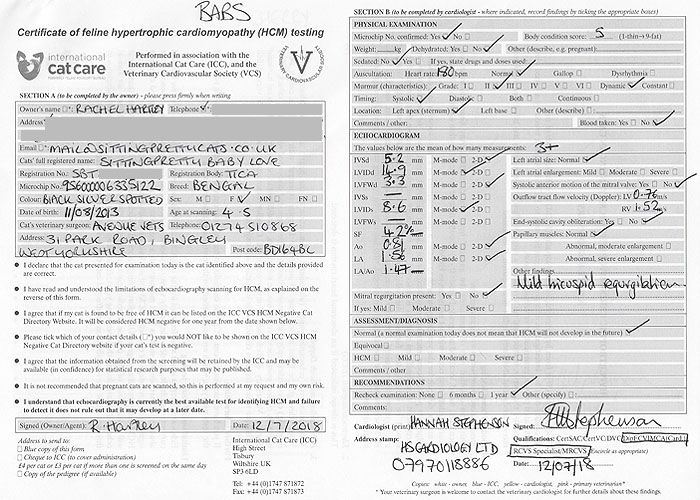 BABS
Certificate of feline hypertrophic cardiomyopathy (HCM) testing
international
cat care
Performed in association with the
International Cat Care (ICC), and the
Veterinary Cardiovascular Society (VCS)
SECTION A (to be completed by the owner) - please press firmly when writing
Owner's name RACHEL HARTLEY Telephone
Address
Email MAIL@SITTINGPRETTYCATS.CO.UK
Cats' full registered name: SITTINGPRETTY BABY LOVE
Registration No.: SBT Registration Body: TICA
Microchip No.: 956000006335122 Breed: BENGAL
Colour: BLACK SILVER SPOTTED Sex: M F MN FN
Date of birth: 11/08/2013 Age at scanning: 4.5
Cat's veterinary surgeon: AVENUE VETS Telephone: 01274 510868
Address: 31 PARK ROAD, BINGLEY
WEST YORKSHIRE Post code: BD164BL
I declare that the cat presented for examination today is the cat identified above and the details provided
are correct.
I have read and understood the limitations of echocardiography scanning for HCM, as explained on the
reverse of this form.
I agree that if my cat is found to be free of HCM it can be listed on the ICC VCS HCM Negative Cat
Directory Website. It will be considered HCM negative for one year from the date shown below.
Please tick which of your contact details (*) you would NOT like to be shown on the ICC VCS HCM
Negative Cat Directory website if your cat's test is negative.
I agree that the information obtained from the screening will be retained by the ICC and may be
available (in confidence) for statistical research purposes that may be published.
It is not recommended that pregnant cats are scanned, so this is performed at my request and my own risk.
I understand that echocardiography is currently the best available test for identifying HCM and failure
to detect it does not rule out that it may develop at a later date.
Signed (Owner/Agent) R. Hartley Date: 12/7/2018
Address to send to:
Blue copy of this form
Cheque to ICC (to cover administration)
£4 per cat or £3 per cat if more than one is screened on the same day
Copy of the pedigree (if available)
International Cat Care (ICC)
High Street
Tisbury
Wiltshire UK
SP3 6LD
Tel: +44 (0)1747 871872
Fax: +44 (0)1747 871873
SECTION B (to be completed by cardiologist - where indicated, record findings by ticking the appropriate boxes)
PHYSICAL EXAMINATION
Microchip No. confirmed: Yes No Body condition score: 5 (1-thin→9-fat)
Weight: kg Dehydrated: Yes No Other (describe, e.g. pregnant):
Sedated: No Yes If yes, state drugs and doses used:
Auscultation: Heart rate: 180 bpm Normal Gallop Dysrhythmia
Murmur (characteristics): Grade: I II III IV V VI Dynamic Constant
Timing: Systolic Diastolic Both Continuous
Location: Left apex (sternum) Left base Other (describe):
Comments / other: Blood taken: Yes No
ECHOCARDIOGRAM
The values below are the mean of how many measurements: 3+
IVSd 5.2 mm M-mode 2-D
LVIDd 14.9 mm M-mode 2-D
LVFWd 3.3 mm M-mode 2-D
IVSs mm M-mode 2-D
LVIDs 8.6 mm M-mode 2-D
LVFWs mm M-mode 2-D
SF 42%
Ao 0.81 mm M-mode 2-D
LA 1.56 mm M-mode 2-D
LA/Ao 1.47
Mitral regurgitation present: Yes No
If yes: Mild Moderate Severe
Left atrial size: Normal
Left atrial enlargement: Mild Moderate Severe
Systolic anterior motion of the mitral valve: Yes No
Outflow tract flow velocity (Doppler): LV 0.76 m/s
RV 1.52 m/s
End-systolic cavity obliteration: Yes No
Papillary muscles: Normal
Abnormal, moderate enlargement
Abnormal, severe enlargement
Other findings
Mild tricuspid regurgitation.
ASSESSMENT/DIAGNOSIS
Normal (a normal examination today does not mean that HCM will not develop in the future)
Equivocal
HCM Mild Moderate Severe
Comments / other
RECOMMENDATIONS
Recheck examination: None 6 months 1 year Other (specify):
Comments:
Cardiologist (print) HANNAH STEPHENSON Signed: HStephenson
Address stamp: HSCARDIOLOGY LTD
07970118886
Qualifications: CertSAC/CertVC/DVC/DipECVIMCA(Card.)
RCVS Specialist/MRCVS (Encircle as appropriate)
Date: 12/07/18
Copies: white - owner, blue - ICC, yellow - cardiologist, pink - primary veterinarian*
* Your veterinary surgeon is welcome to contact the veterinary cardiologist for further details about these findings.